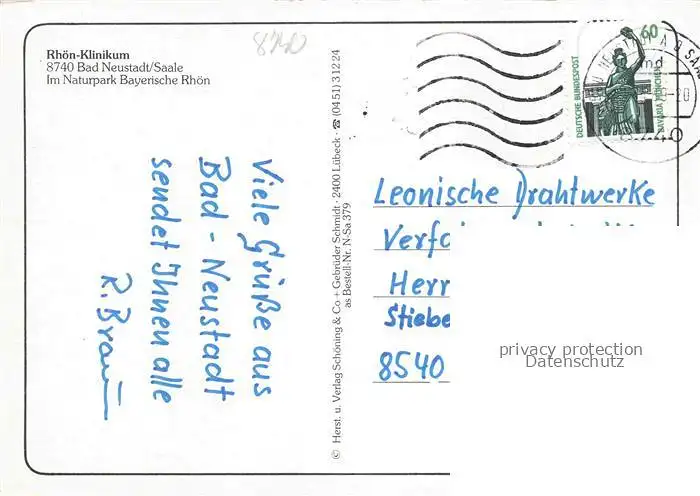 8740
Rhön-Klinikum
8740 Bad Neustadt/Saale
Im Naturpark Bayerische Rhön
Viele Grüße aus
Bad-Neustadt
sendet Ihnen alle
R. Braun
© Herst. u. Verlag Schöning & Co + Gebrüder Schmidt · 2400 Lübeck · ☎ (0451) 31224
as Bestell-Nr. N-Sa 379
60
DEUTSCHE BUNDESPOST
BAVARIA MÜNCHEN
8740
Leonische Drahtwerke
Verfa
Herr
Stiebe
8540
privacy protection
Datenschutz